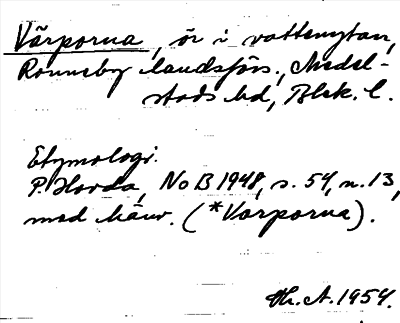 Vårporna, ör i vattenytan,
Ronneby landsförs., Medel-
stads hd, Blek. l.
Etymologi.
P. Hovda, NoB 1948, s. 54, n. 13,
med hänv. (*Vorporna).
Th. A. 1954.